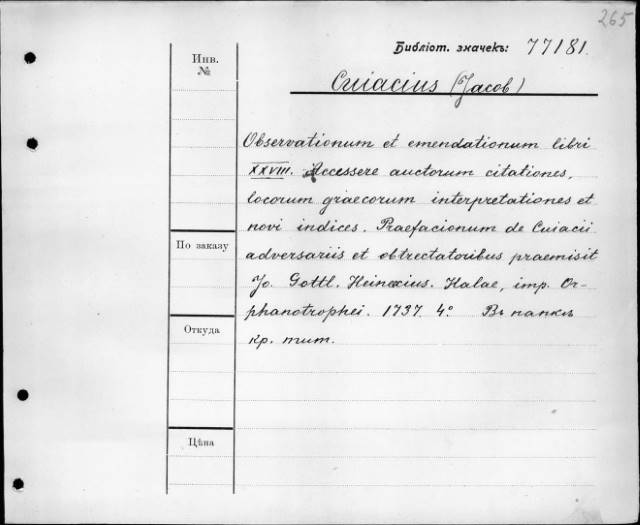 265
Библіот. значекъ: 77181.
Инв.
№
Cuiacius (Jacob)
Observationum et emendationum libri
XXVIII. Accessere auctorum citationes,
locorum graecorum interpretationes et
novi indices. Praefacionum de Cuiacii
adversariis et obtrectatoribus praemisit
Jo. Gottl. Heinexius. Halae, imp. Or-
phanotrophei. 1737. 4° Въ папкѣ
кр. тит.
По заказу
Откуда
Цѣна